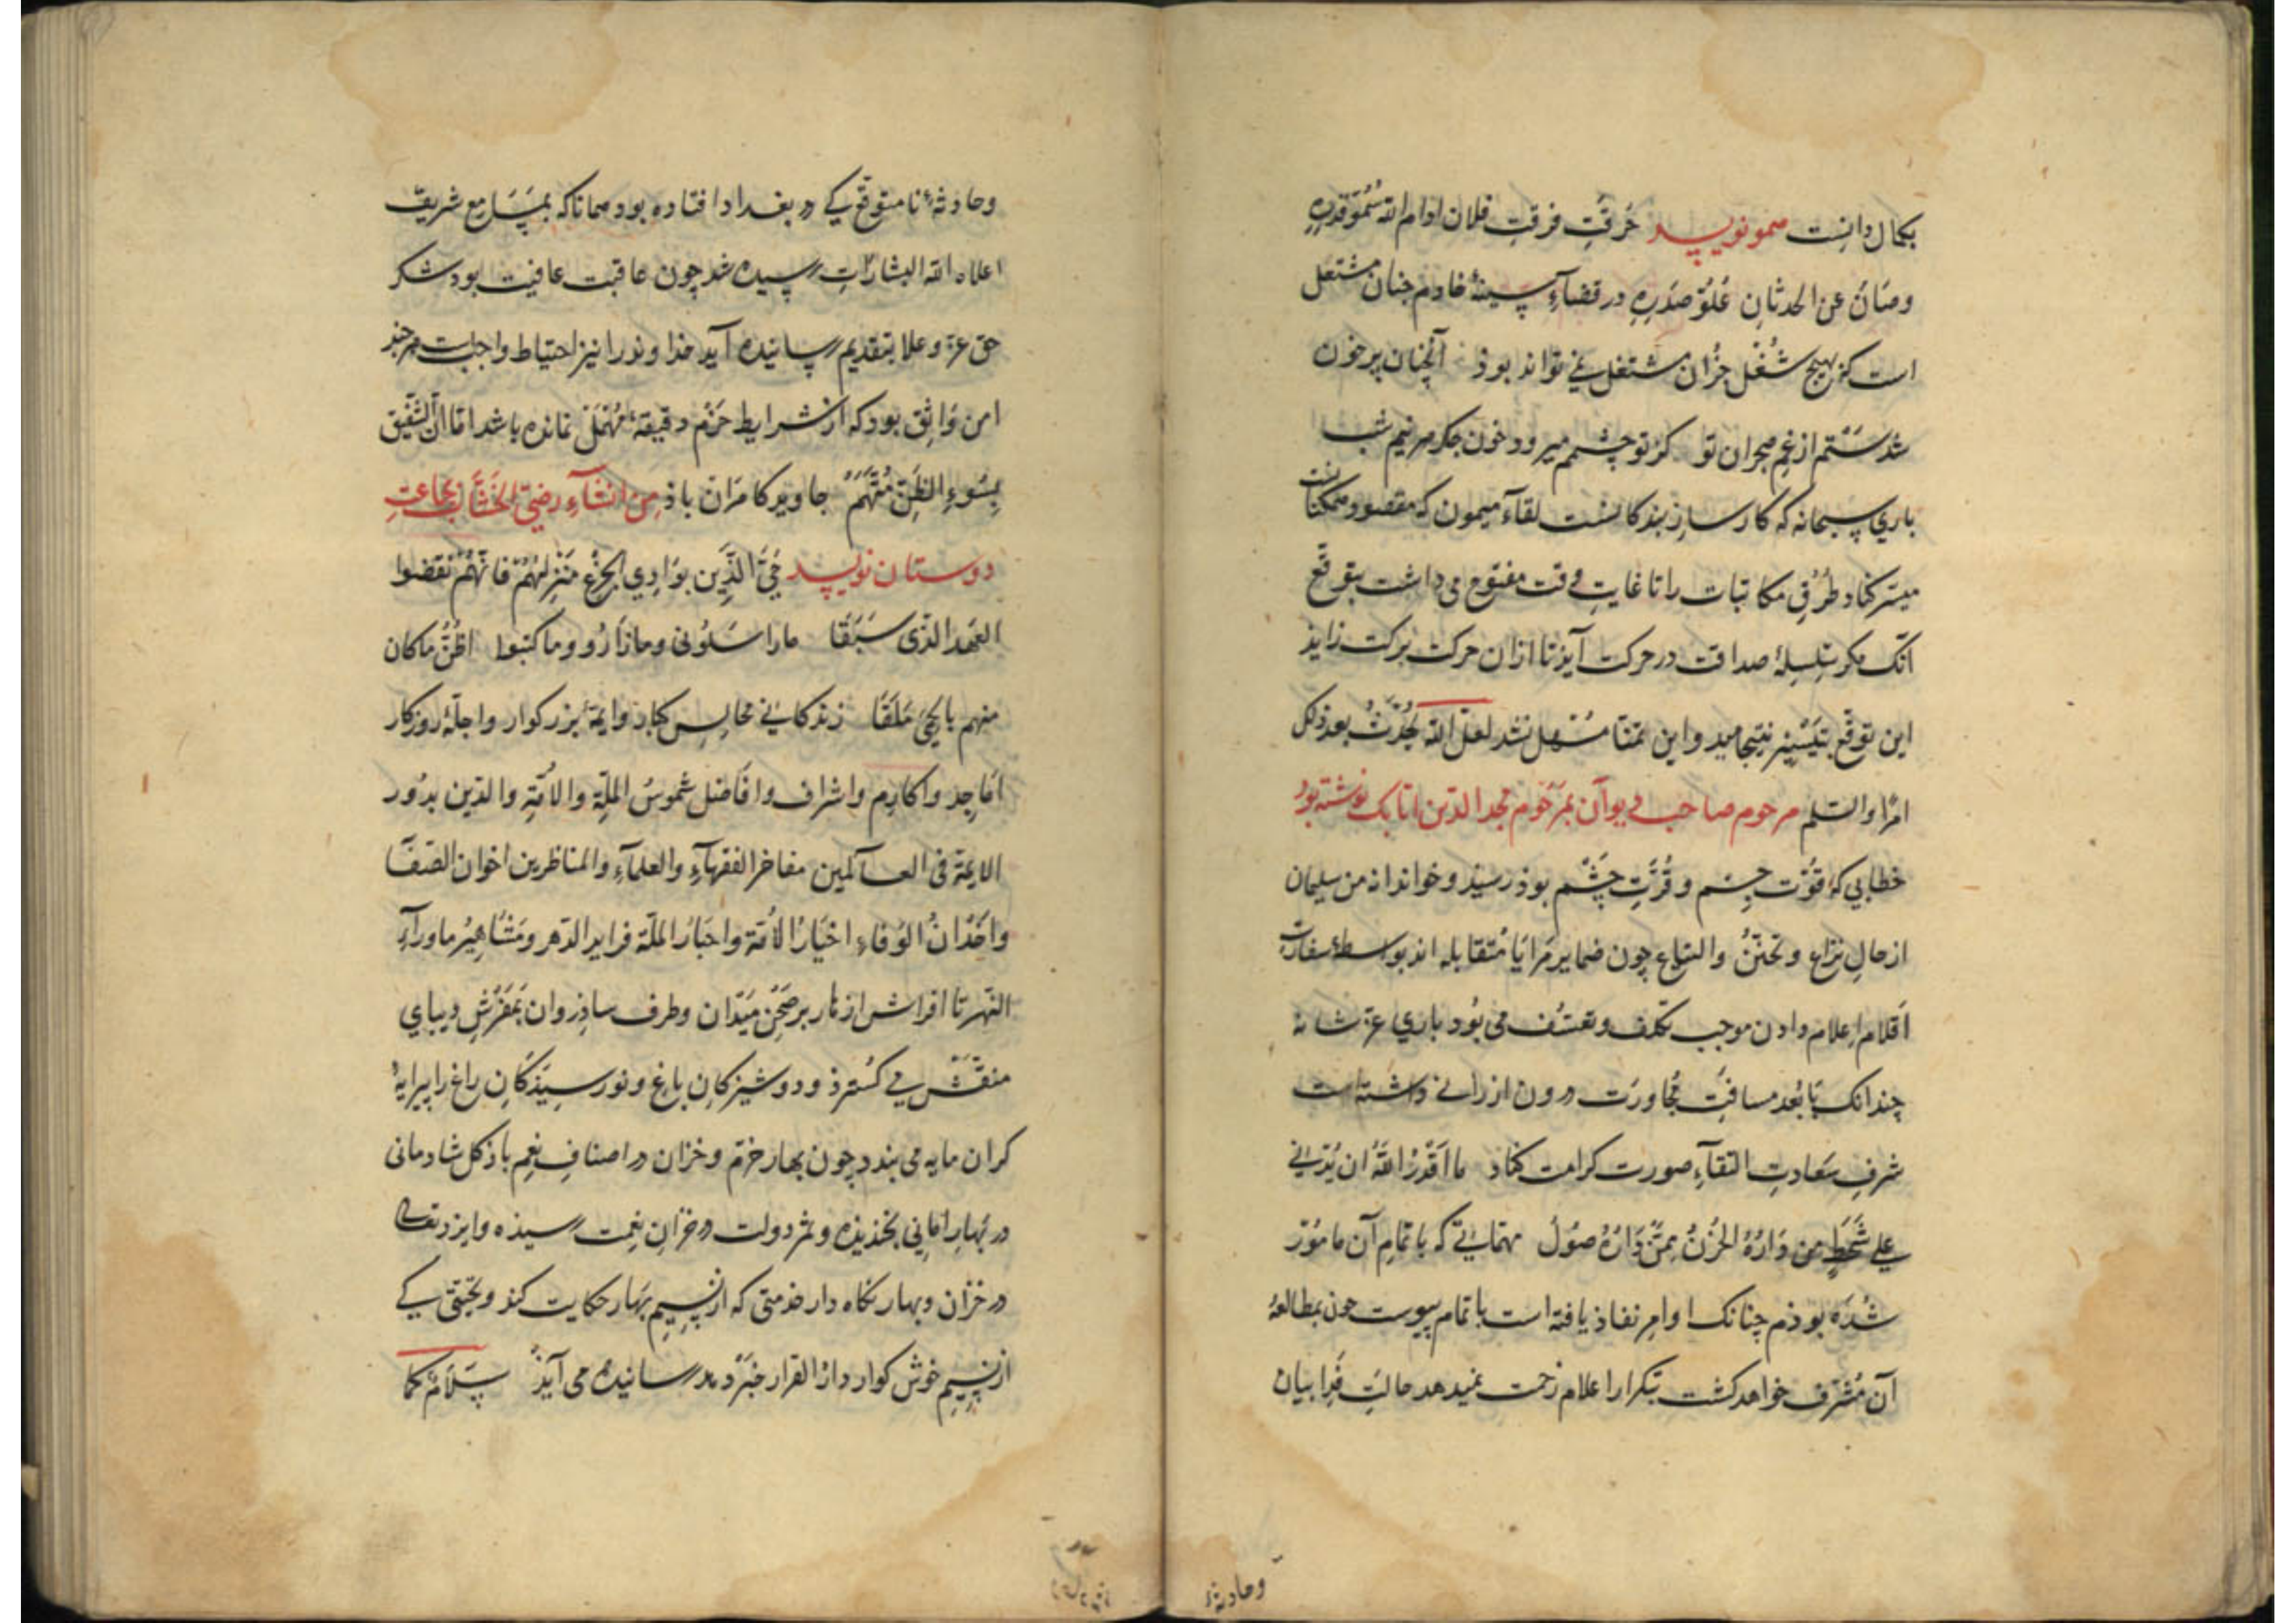 بکمال دانست همو نویسد حُرقتِ فرقتِ فلان ادام الله سُمُوّ قدرِه
وصَانَ عن الحدثانِ عُلوّ صدرِهِ در فضاءِ سینهٔ خادم چنان مشتعل
است کز هیچ شُغْل جُز آن مشتغل نمی تواند بوذ آنچنان پر خون
شدستم از غم هجران تو کز تو چشمم میرود خون جکر هر نیم شب
باری سبحانه که کارساز بندکانست لقاء میمون که مقصود ممکنات
میسّر کناد طُرُقِ مکاتبات را تا غایتِ وقت مفتوح می داشت بتوقّع
آنک مکر سلسلهٔ صداقت در حرکت آیذ تا ازان حرکت برکت زاید
این توقّع بتیسیر نینجامید و این تمنّا مُسَهل نشد لعلّ الله یُحْدِثُ بعد ذلک
امرًا والسّلم مرحوم صاحب دیوان بمرحوم مجد الدین اتابک نوشته بود
خطابی که قُوّت جسم و قُرّتِ چَشْم بوذ رسیذ و خواندانه من سلیمان
از حالِ نزاع و تحنّنُ والتیاع چون ضمایر مَرایَا مُتقابله اند بواسطهٔ سفارت
اقلام اِعلام دادن موجب تکلف و تعسّف می بُود باری عزّ شانه
چندانک بَا بُعد مسافتِ مُجاورَت درون ارزانی داشته است
شرفِ سَعادتِ التقاءِ صورت کرامت کناد ما اَقْدَرُ اللهُ ان یُدْنی
علی شَحَطٍ من دَارُهُ الحُزْنُ مِمَّن دَارُهُ صُولُ مهمّاتی که باتمامِ آن مامُور
شُدَه بوذم چنانک اوامر نفاذ یافته است باتمام پیوست چون بمطالعهٔ
آن مُشَرّف خواهد کشت بتکرار اعلام زحمت نمیدهد حالتِ فَرا بیان
وحادثهٔ
وحادثهٔ نا متوقّع کی در بغداد افتاده بود همانا که بمسَامع شریف
اعلاه الله البشارات رسیده شد چون عاقبت عافیت بود شکر
حق عزّ وعلا بتقدیم رسانیده آید خذاوند را نیز احتیاط واجبست هرچند
امن وَاثِق بود که از شرایط حَزْم دقیقهٔ مُهْمَل نمانده باشد امّا انّ الشّفیق
بِسُوءِ الظنِّ مُتَّهَمُ جاوید کامرَان باذ مِن انشاءِ رضیّ الخشّاب بجماعتِ
دوستان نویسد حَیِّ الذین بوَادِی الجِزْعِ مَنزِلهُمْ فانّهُمُ نَقَضُوا
العَهد الذی سَبَقَا ماراسَلُونی وما زارُو وما کتبوا اظُنُّ ما کان
منهم بالحیّ مَلَقَا زندکانی مجالس کبار وایمّهٔ بزرکوار واجلّهٔ روزکار
امَاجِد واکارِم واشراف وافَاضل شموسُ الملّةِ والامّةِ والدّین بدُور
الایمّة فی العالَمین مفاخر الفقهآءِ والعلمآءِ والمناظرین اخوان الصّفَا
واخْدَانُ الوُفاءِ اخیَارُ الامّة واحبَارُ الملّة فراید الدّهر ومَشاهِیرُ ماورآءِ
النّهر تا افراش از نار بر صَحْن مَیَدان وطرف ساذروان بمَفْرَشِ دیبای
منقّش می کسترذ و دوشیزکانِ باغ ونورسیذکانِ راغ را پیرایهٔ
کران مایه می بندد چون بهار خرّم و خزان در اصنافِ نِعَم باذ کل شادمانی
در بَهارِ امانی بخندیده و ثمر دولت در خزانِ نِعمت رسیذه وایزد تعالی
در خزان وبهار نکاه دار خدمتی که از نسیم بَهار حکایت کند و تحیّتی کی
از نسیم خوش کوار دارُ القرار خبَر دهد رسانیده می آیذ سَلامٌ کما